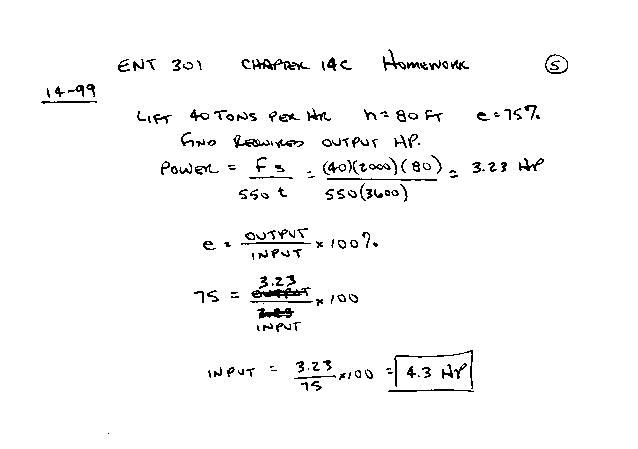 ENT 301 CHAPTER 14C HOMEWORK 5
14-99
LIFT 40 TONS PER HR h = 80 FT e = 75%
FIND REQUIRED OUTPUT HP.
POWER = F s / 550 t = (40)(2000)(80) / 550(3600) = 3.23 HP
e = OUTPUT / INPUT × 100%
75 = 3.23 / INPUT × 100
INPUT = 3.23 / 75 × 100 = 4.3 HP